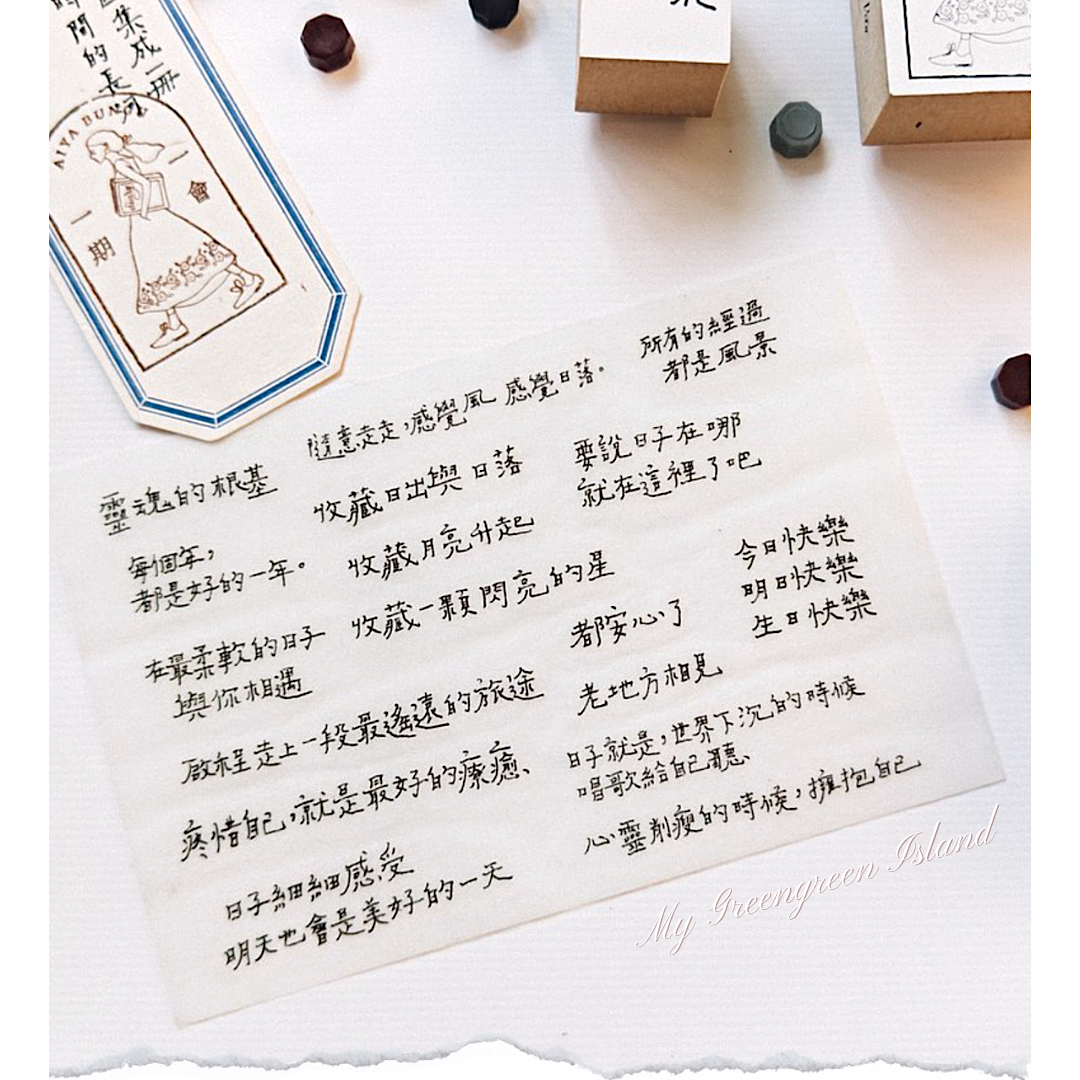 集成一冊
時間的長河
AIYA BUN
一期
一會
隨意走走,感覺風 感覺日落。
所有的經過
都是風景
靈魂的根基
收藏日出與日落
要說日子在哪
就在這裡了吧
每個年,
都是好的一年。
收藏月亮升起
收藏一顆閃亮的星
今日快樂
明日快樂
生日快樂
在最柔軟的日子
與你相遇
都安心了
老地方相見
啟程走上一段最遙遠的旅途
日子就是,世界下沉的時候
唱歌給自己聽、
疼惜自己,就是最好的療癒、
心靈削瘦的時候,擁抱自己
日子細細感受
明天也會是美好的一天
My Greengreen Island